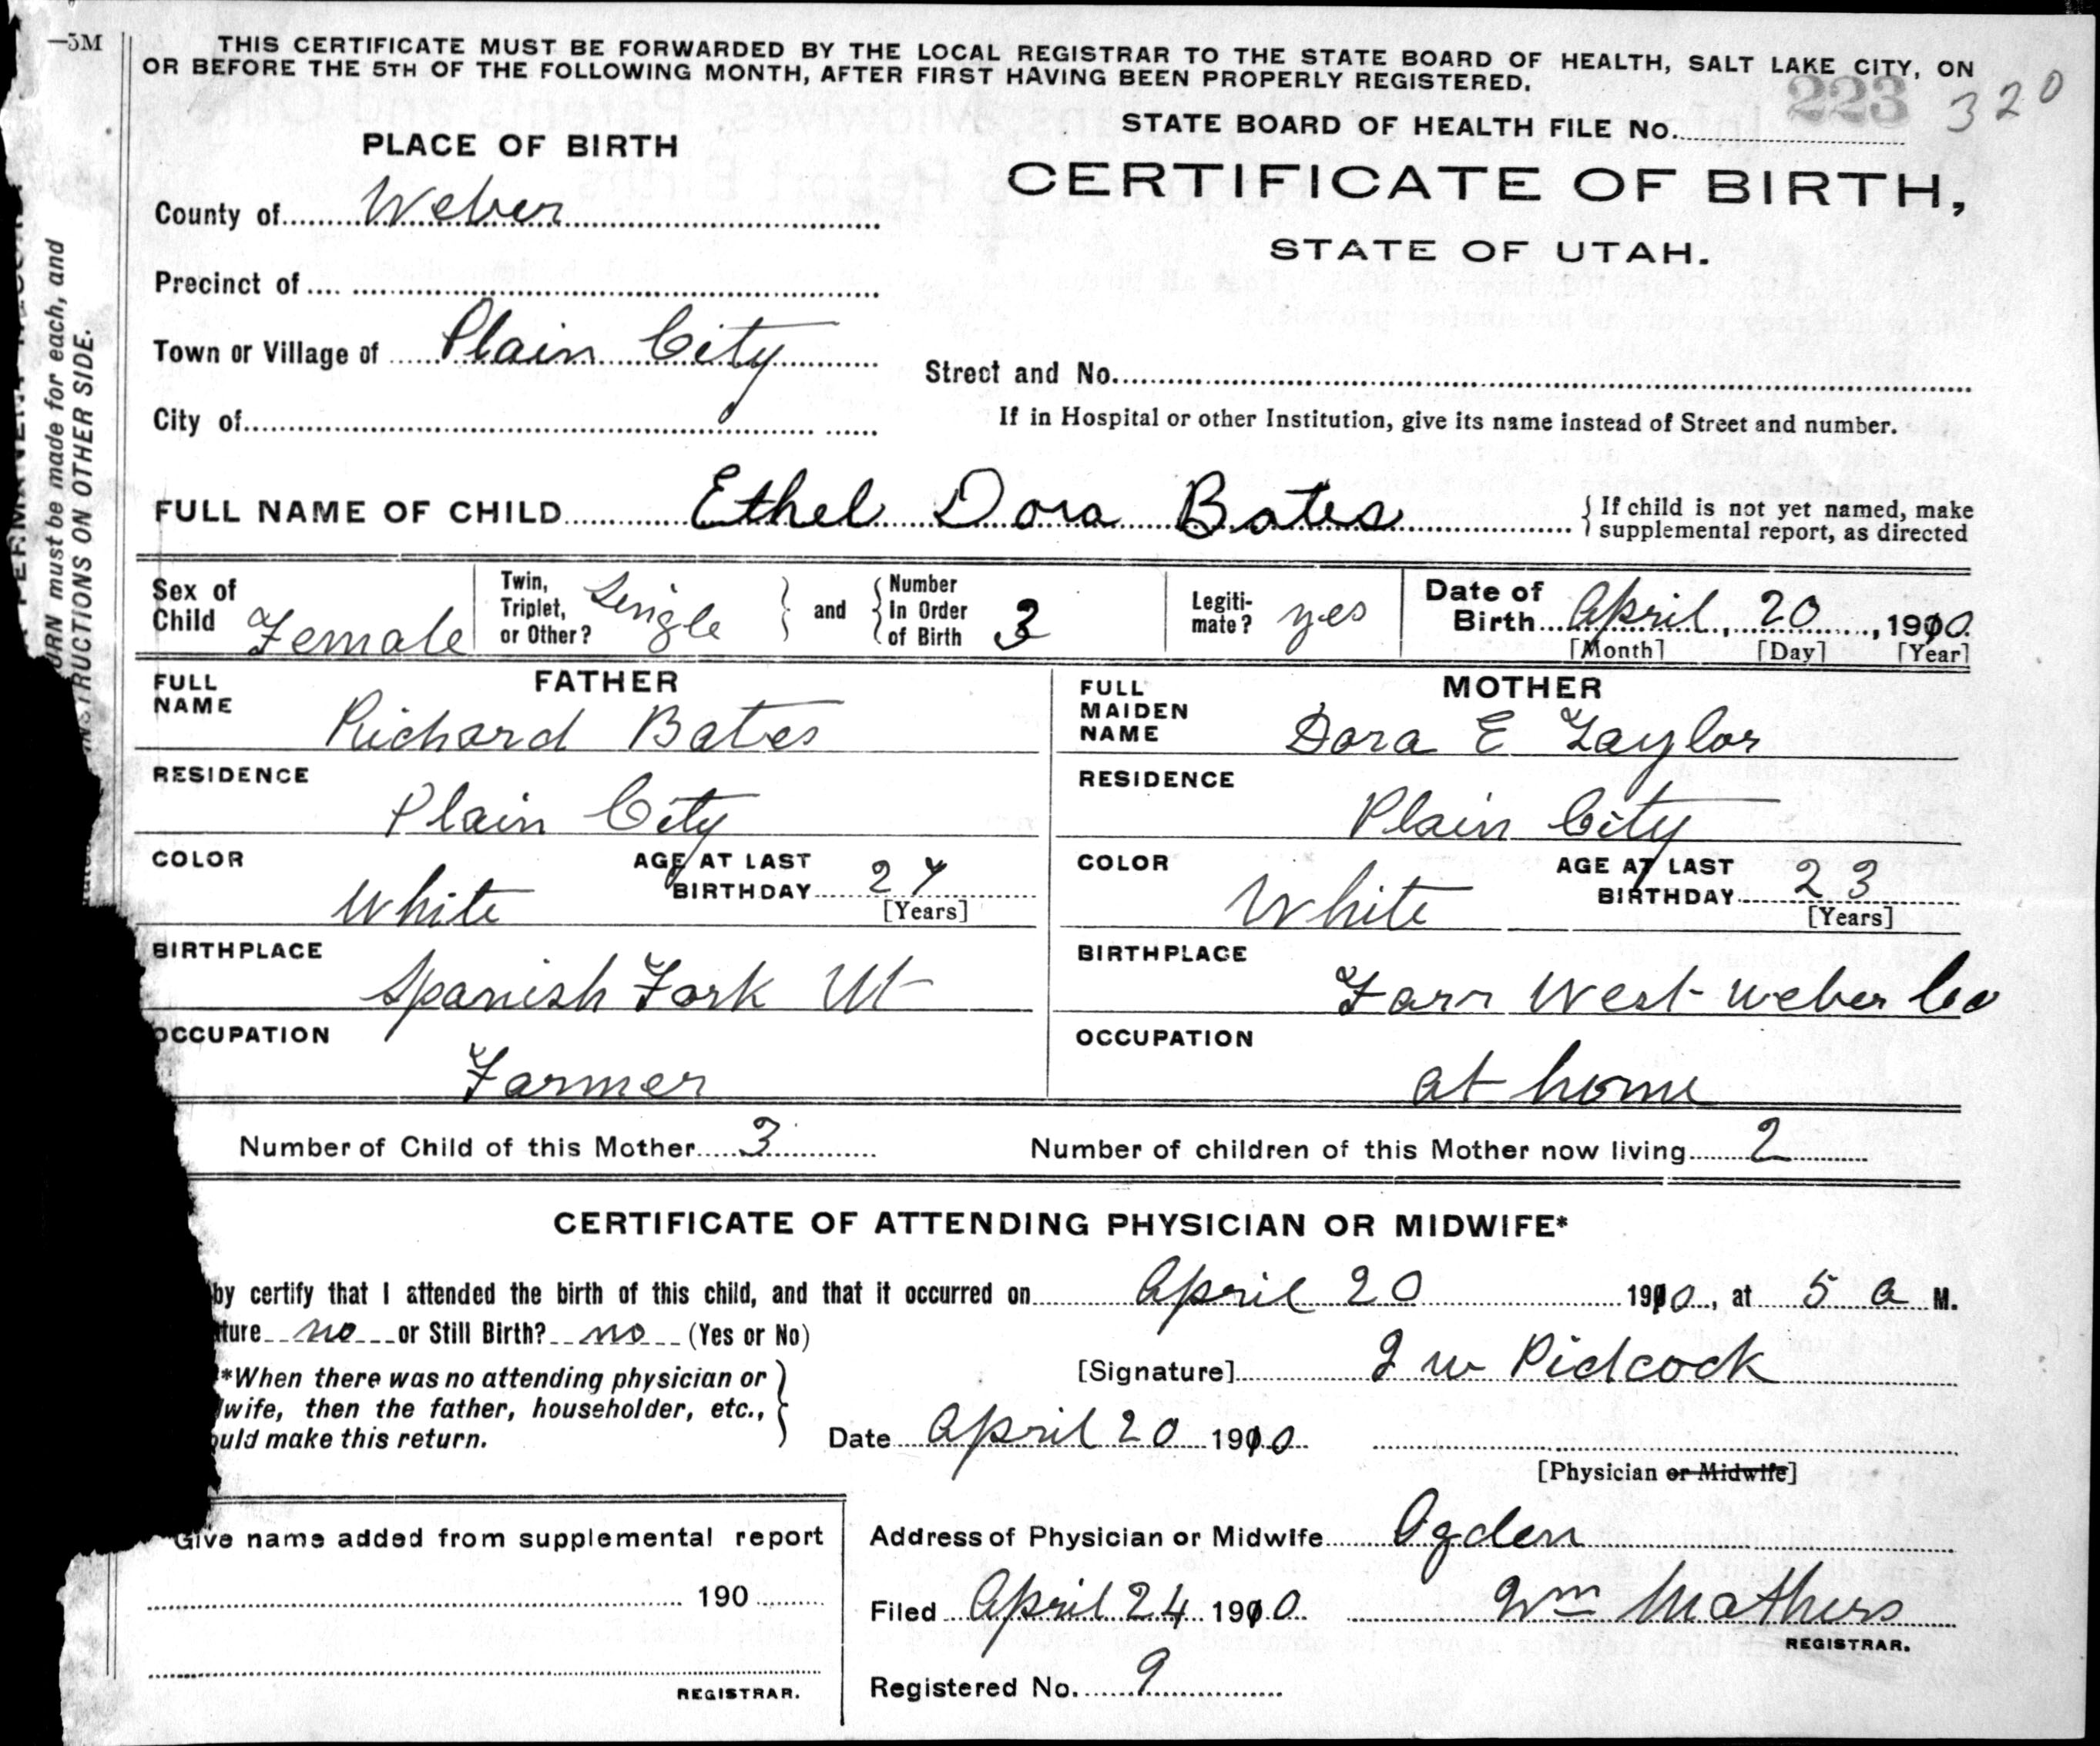 —5M
THIS CERTIFICATE MUST BE FORWARDED BY THE LOCAL REGISTRAR TO THE STATE BOARD OF HEALTH, SALT LAKE CITY, ON
OR BEFORE THE 5TH OF THE FOLLOWING MONTH, AFTER FIRST HAVING BEEN PROPERLY REGISTERED.
223 320
STATE BOARD OF HEALTH FILE No.
PLACE OF BIRTH
CERTIFICATE OF BIRTH,
STATE OF UTAH.
County of Weber
Precinct of
Town or Village of Plain City
Street and No.
City of
If in Hospital or other Institution, give its name instead of Street and number.
FULL NAME OF CHILD Ethel Dora Bates { If child is not yet named, make
supplemental report, as directed
Sex of Child Female
Twin, Triplet, or Other? Single } and { Number In Order of Birth 3
Legiti-mate? yes
Date of Birth April, 20, 1910
[Month] [Day] [Year]
FATHER
FULL NAME Richard Bates
MOTHER
FULL MAIDEN NAME Dora E Taylor
RESIDENCE Plain City
RESIDENCE Plain City
COLOR White AGE AT LAST BIRTHDAY 24 [Years]
COLOR White AGE AT LAST BIRTHDAY 23 [Years]
BIRTHPLACE Spanish Fork Ut
BIRTHPLACE Farr West Weber Co
OCCUPATION Farmer
OCCUPATION at home
Number of Child of this Mother 3
Number of children of this Mother now living 2
CERTIFICATE OF ATTENDING PHYSICIAN OR MIDWIFE*
by certify that I attended the birth of this child, and that it occurred on April 20 1910, at 5 a M.
ture no or Still Birth? no (Yes or No)
[Signature] J W Pidcock
*When there was no attending physician or
wife, then the father, householder, etc.,
ould make this return.
Date April 20 1910
[Physician or Midwife]
Give name added from supplemental report
190
REGISTRAR.
Address of Physician or Midwife Ogden
Filed April 24 1910 Wm Mathers
REGISTRAR.
Registered No. 9
URN must be made for each, and
INSTRUCTIONS ON OTHER SIDE.